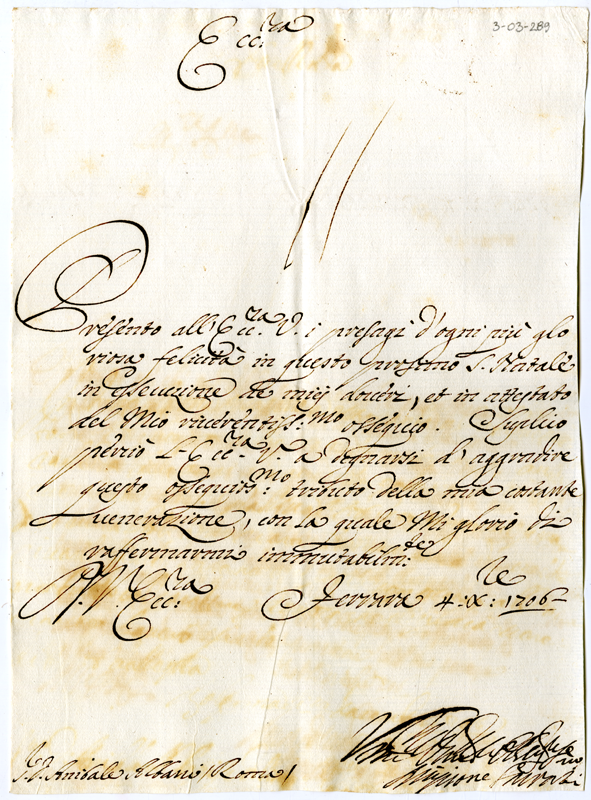 3-03-289
Ecc:ra
Presento all'Ecc:ra V. i presagi d'ogni più glo
riosa felicità in questo prossimo S. Natale
in essecuzione de miei doveri, et in attestato
del Mio riverentiss:mo ossequio. Suplico
perciò L'Ecc:ra V.a a degnarsi d'aggradire
questo ossequios:mo tributo della mia costante
venerazione, con la quale Mi glorio di
raffermarmi immutabilm:te
D. V. Ecc:ra Ferrara 4: X:re 1706
S.r D. Anibale Albani / Roma /
Scipione